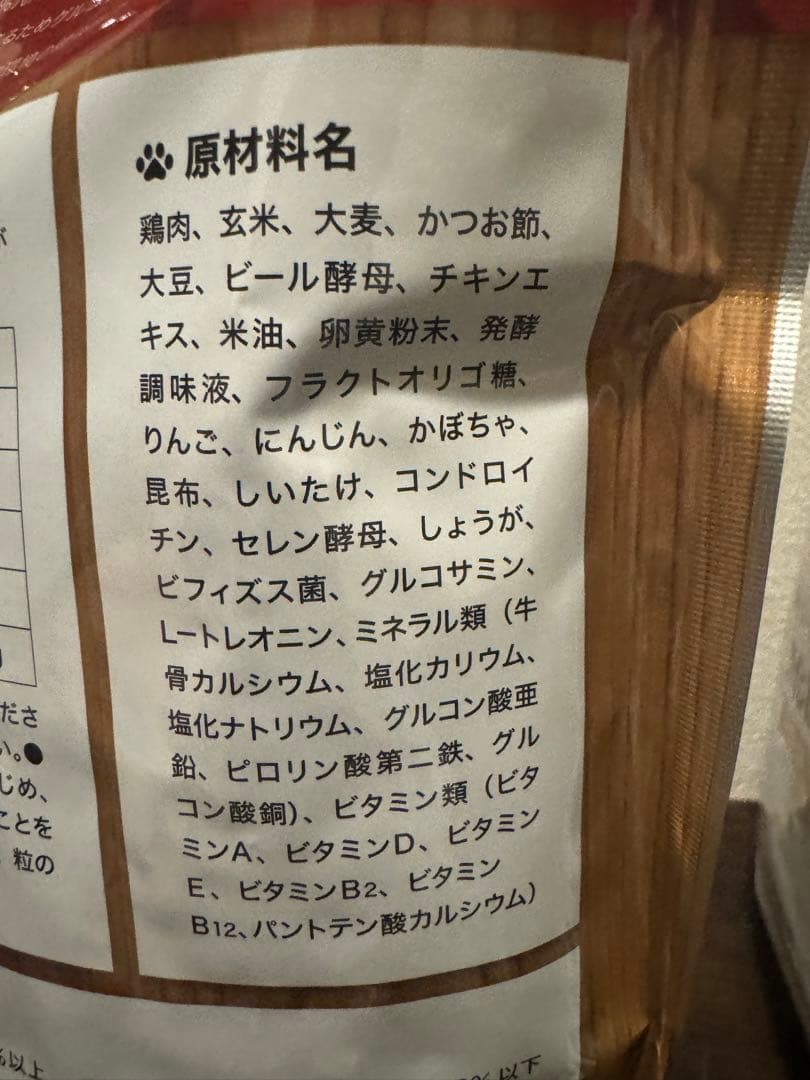 るためグル
原材料名
鶏肉、玄米、大麦、かつお節、
大豆、ビール酵母、チキンエ
キス、米油、卵黄粉末、発酵
調味液、フラクトオリゴ糖、
りんご、にんじん、かぼちゃ、
昆布、しいたけ、コンドロイ
チン、セレン酵母、しょうが、
ビフィズス菌、グルコサミン、
L-トレオニン、ミネラル類（牛
骨カルシウム、塩化カリウム、
塩化ナトリウム、グルコン酸亜
鉛、ピロリン酸第二鉄、グル
コン酸銅）、ビタミン類（ビタ
ミンA、ビタミンD、ビタミン
E、ビタミンB2、ビタミン
B12、パントテン酸カルシウム）
が
ださ
い。●
じめ、
ことを
粒の
%以上
%以下